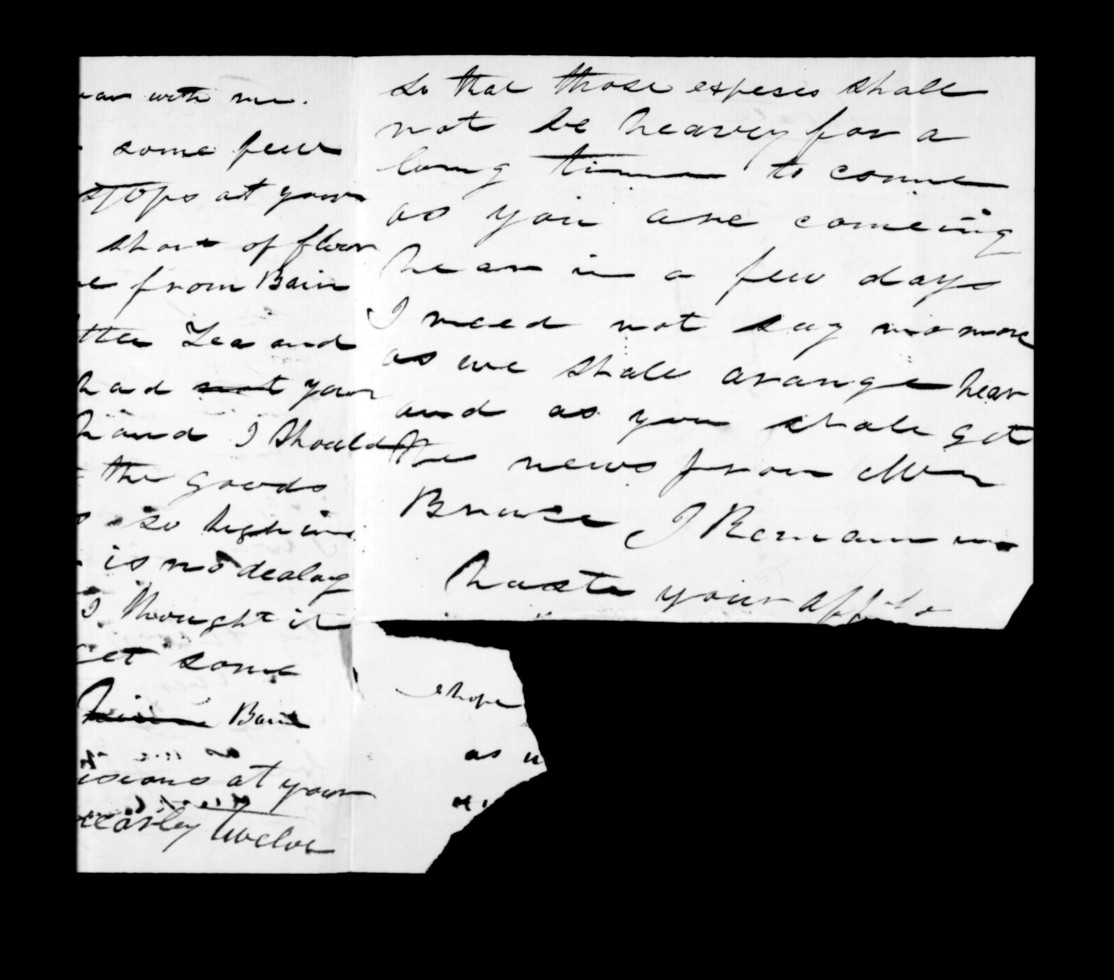 with me.
some few
stops at your
short of flour
from Bain
Tea and
had your
hand I should
the goods
so high in
is no dealag
I thought it
get some
Bain
at your
twelve
so that those expeses shall
not be heavey for a
long time to come
as you are comeing
hear in a few days
I need not say no more
as we shall arange hear
and as you shall get
the news from Mr
Bruce I Remain in
haste your aff
hope
as